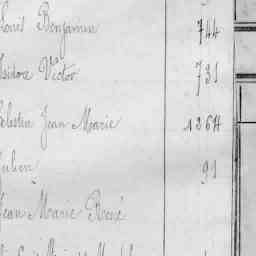 Louis Benjamin 744
Isidore Victor 731
Célestin Jean Marie 1264
Julien 91
Jean Marie René